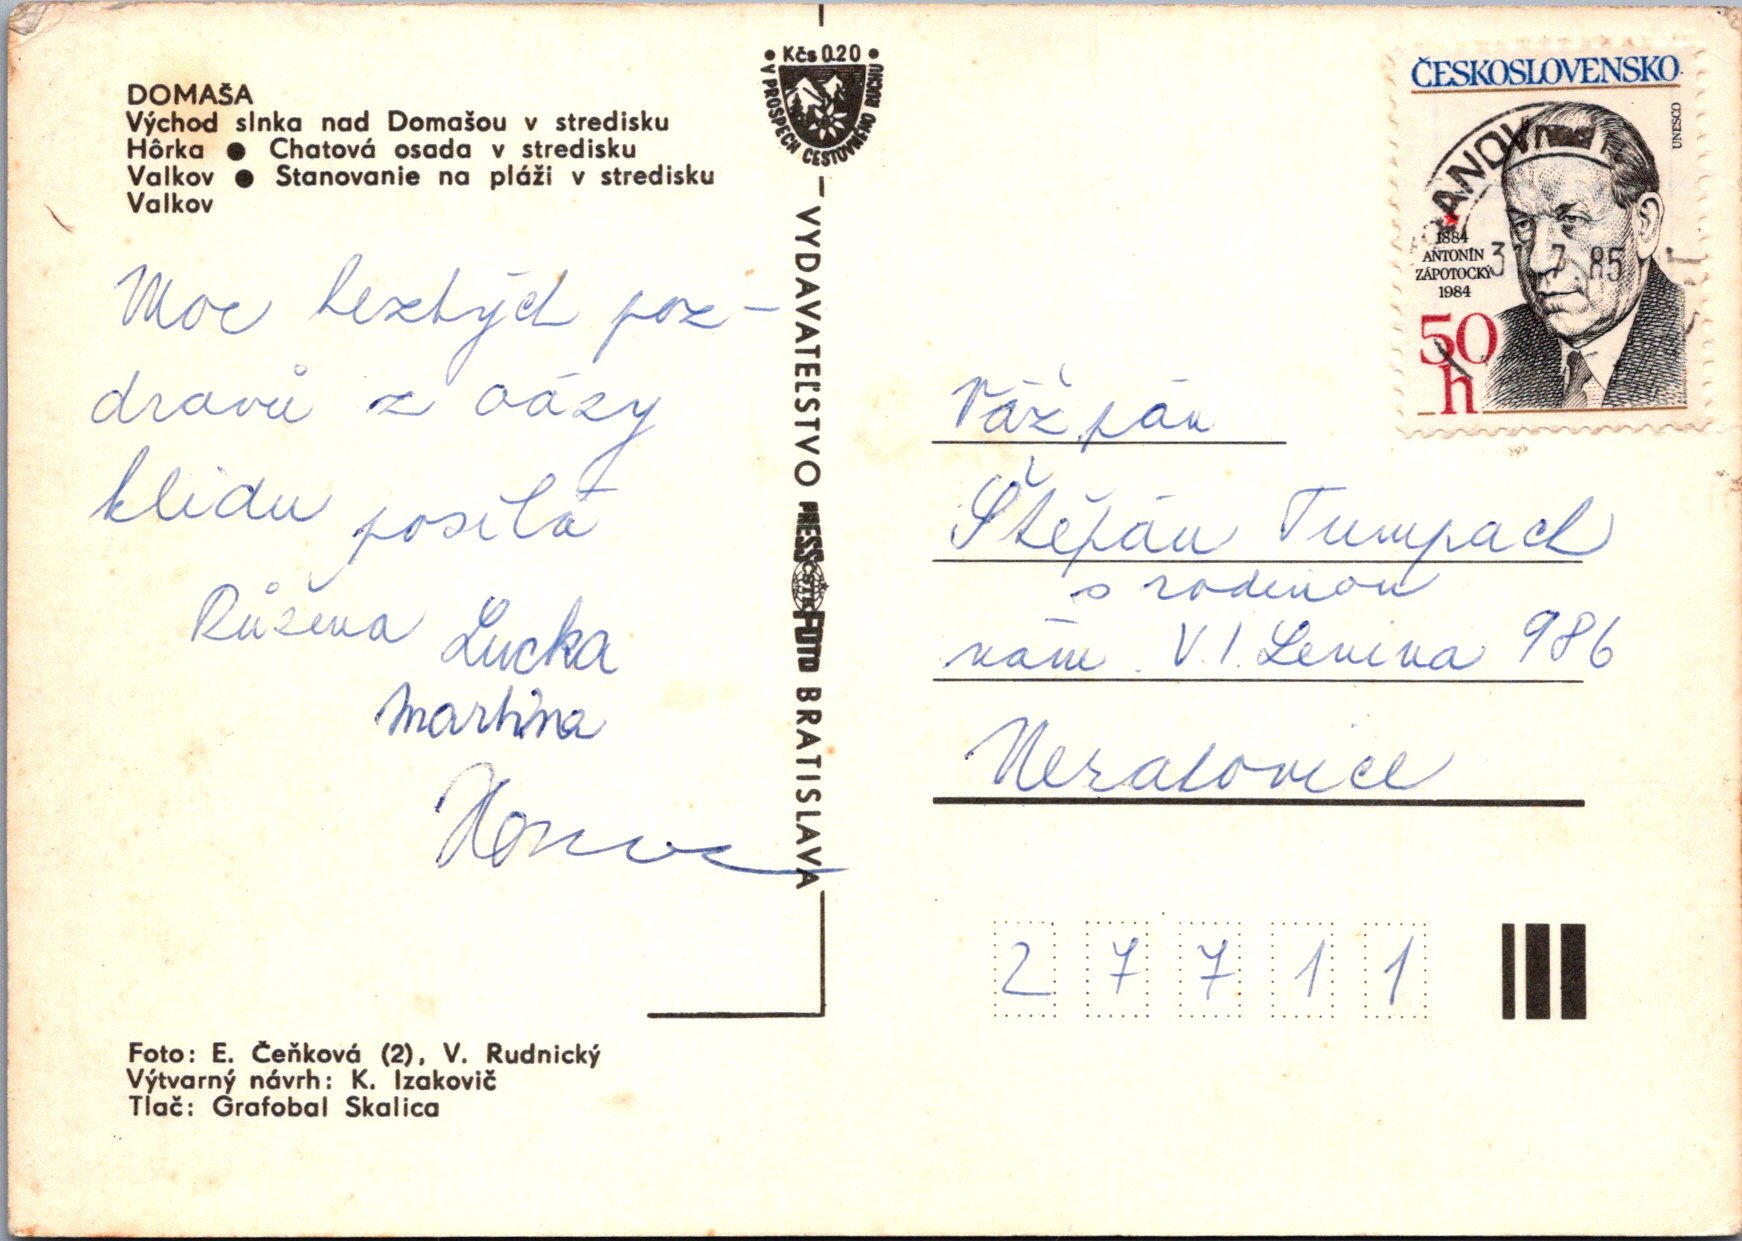 DOMAŠA
Východ slnka nad Domašou v stredisku
Hôrka ● Chatová osada v stredisku
Valkov ● Stanovanie na pláži v stredisku
Valkov
Moc hezkých poz-
dravů z oázy
klidu posílá
Růžena Lucka
Martina
Foto: E. Čeňková (2), V. Rudnický
Výtvarný návrh: K. Izakovič
Tlač: Grafobal Skalica
Kčs 0.20
V PROSPECH CESTOVNÉHO RUCHU
VYDAVATEĽSTVO PRESSFOTO BRATISLAVA
ČSTK
ČESKOSLOVENSKO
UNESCO
1884
ANTONÍN
ZÁPOTOCKÝ
1984
50
h
85
Váž. pán
Štěpán Tumpach
s rodinou
nám. V. I. Lenina 986
Neratovice
27711